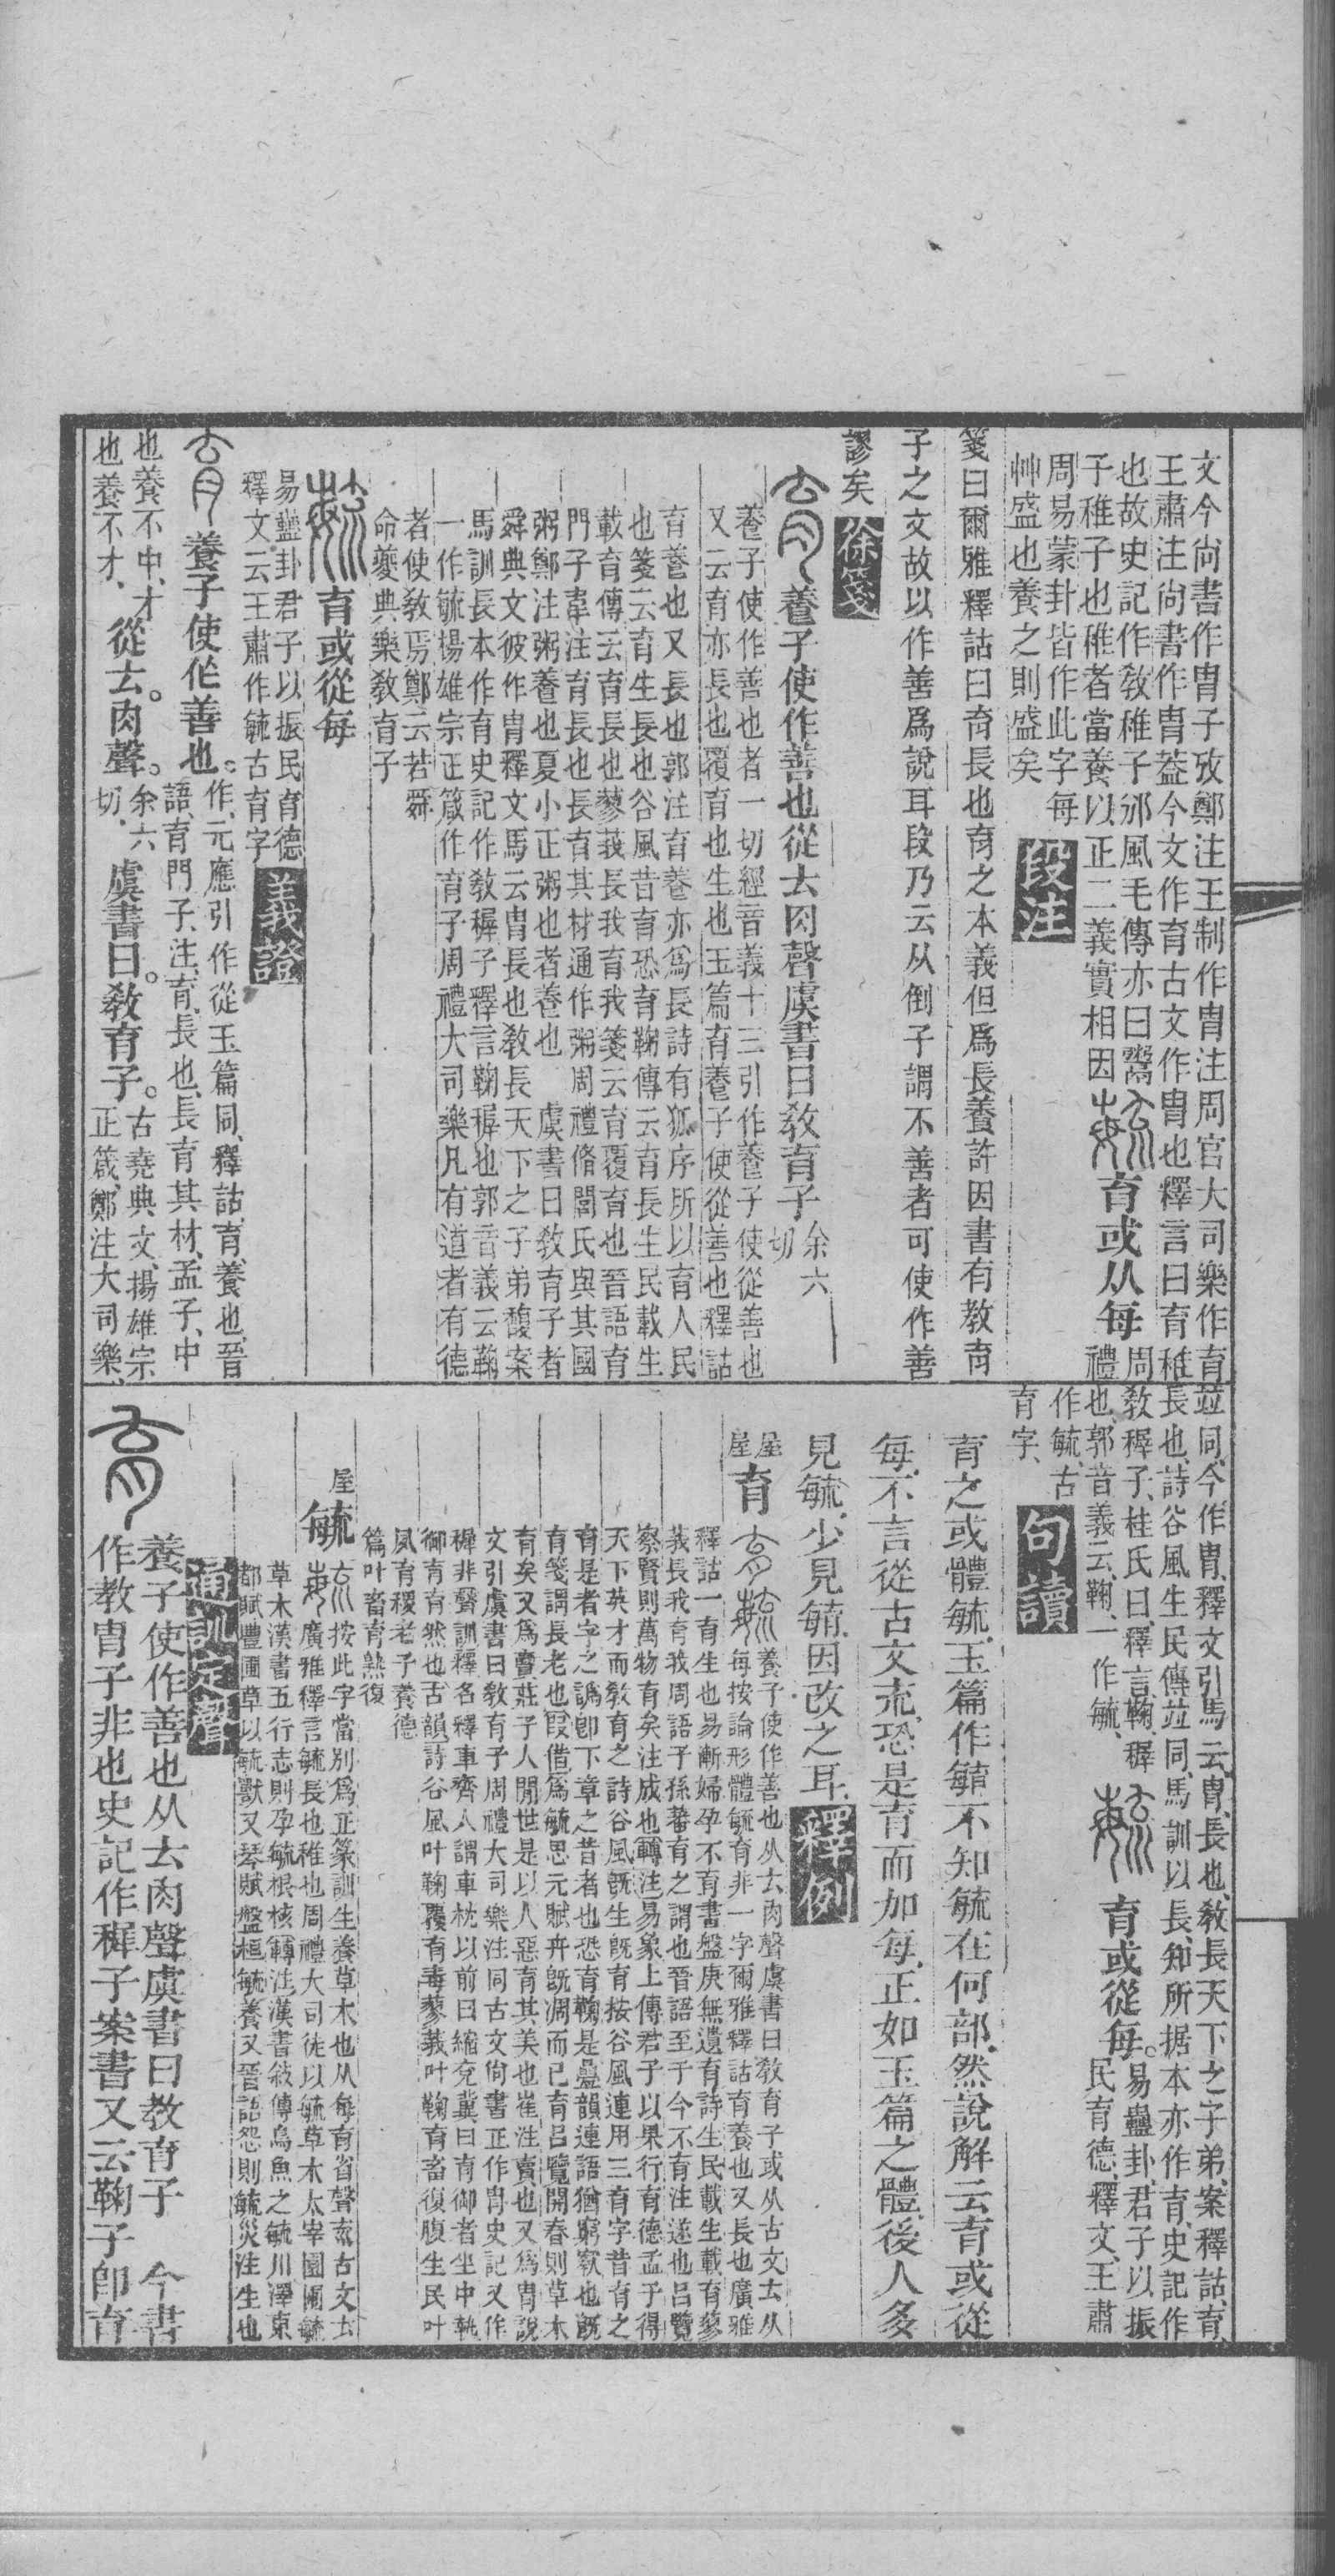 文今尚書作冑子攷鄭注王制作冑注周官大司樂作育
王肅注尚書作冑葢今文作育古文作冑也釋言曰育稚
也故史記作敎稚子邠風毛傳亦曰鬻
子稚子也稚者當養以正二義實相因
育或从每
周
禮
周易蒙卦皆作此字每
艸盛也養之則盛矣
段注
箋曰爾雅釋詁曰育長也育之本義但爲長養許因書有教育
子之文故以作善爲說耳段乃云从倒子謂不善者可使作善
謬矣
徐箋
養子使作善也從𠫓肉聲虞書曰敎育子
余六
切
養子使作善也者一切經音義十三引作養子使從善也
又云育亦長也覆育也生也玉篇育養子使從善也釋詁
育養也又長也郭注育養亦爲長詩有狐序所以育人民
也箋云育生長也谷風昔育恐育鞠傳云育長生民載生
載育傳云育長也蓼莪長我育我箋云育覆育也晉語育
門子韋注育長也長育其材通作粥周禮脩閭氏與其國
粥鄭注粥養也夏小正粥也者養也 虞書曰敎育子者
舜典文彼作冑釋文馬云冑長也敎長天下之子弟馥案
馬訓長本作育史記作敎穉子釋言鞠穉也郭音義云鞠
一作毓揚雄宗正箴作育子周禮大司樂凡有道者有德
者使敎焉鄭云若舜
命夔典樂敎育子
育或從每
易蠱卦君子以振民育德
釋文云王肅作毓古育字
義證
養子使作善也。
作、元應引作從玉篇同、釋詁、育、養也、晉
語、育門子、注、育、長也、長育其材、孟子、中
也養不中、才
也養不才、
從𠫓。肉聲。
余六
切、
虞書曰。敎育子。
古堯典文、揚雄宗
正箴、鄭注大司樂、
竝同、今作冑、釋文引馬云、冑、長也、敎長天下之子弟、案釋詁、育、
長也、詩谷風生民傳竝同、馬訓以長、知所据本亦作育、史記作
敎穉子、桂氏曰、釋言、鞠、穉
也、郭音義云、鞠、一作毓、
育或從每。
易蠱卦、君子以振
民育德、釋文、王肅
作毓、古
育字、
句讀
育之或體毓、玉篇作毓、不知毓在何部、然說解云育或從
每、不言從古文㐬、恐是育而加每、正如玉篇之體、後人多
見毓、少見毓、因改之耳、
釋例
屋
屋
育
養子使作善也从𠫓肉聲虞書曰敎育子或从古文𠫓从
每按論形體毓育非一字爾雅釋詁育養也又長也廣雅
釋詁一育生也易漸婦孕不育書盤庚無遺育詩生民載生載育蓼
莪長我育我周語子孫蕃育之謂也晉語至于今不育注遂也呂覽
察賢則萬物育矣注成也轉注易象上傳君子以果行育德孟子得
天下英才而敎育之詩谷風旣生旣育按谷風連用三育字昔育之
育是者字之譌卽下章之昔者也恐育鞠是疊韻連語猶窮蹙也旣
育箋謂長老也叚借爲毓思元賦卉旣凋而已育呂覽開春則草木
育矣又爲賣莊子人閒世是以人惡育其美也崔注賣也又爲冑說
文引虞書曰敎育子周禮大司樂注同古文尙書正作冑史記又作
穉非聲訓釋名釋車齊人謂車枕以前曰縮兗冀曰育御者坐中執
御育育然也古韻詩谷風叶鞠覆育毒蓼莪叶鞠育畜復腹生民叶
夙育稷老子養德
篇叶畜育熟復
屋
毓
按此字當別爲正篆訓生養草木也从每育省聲㐬古文𠫓
廣雅釋言毓長也稚也周禮大司徒以毓草木太宰園圃毓
草木漢書五行志則孕毓根核轉注漢書敘傳烏魚之毓川澤東
都賦豐圃草以毓獸又琴賦盤桓毓養又晉語怨則毓災注生也
通訓定聲
養子使作善也从𠫓肉聲虞書曰教育子 今書
作教冑子非也史記作穉子案書又云鞠子卽育